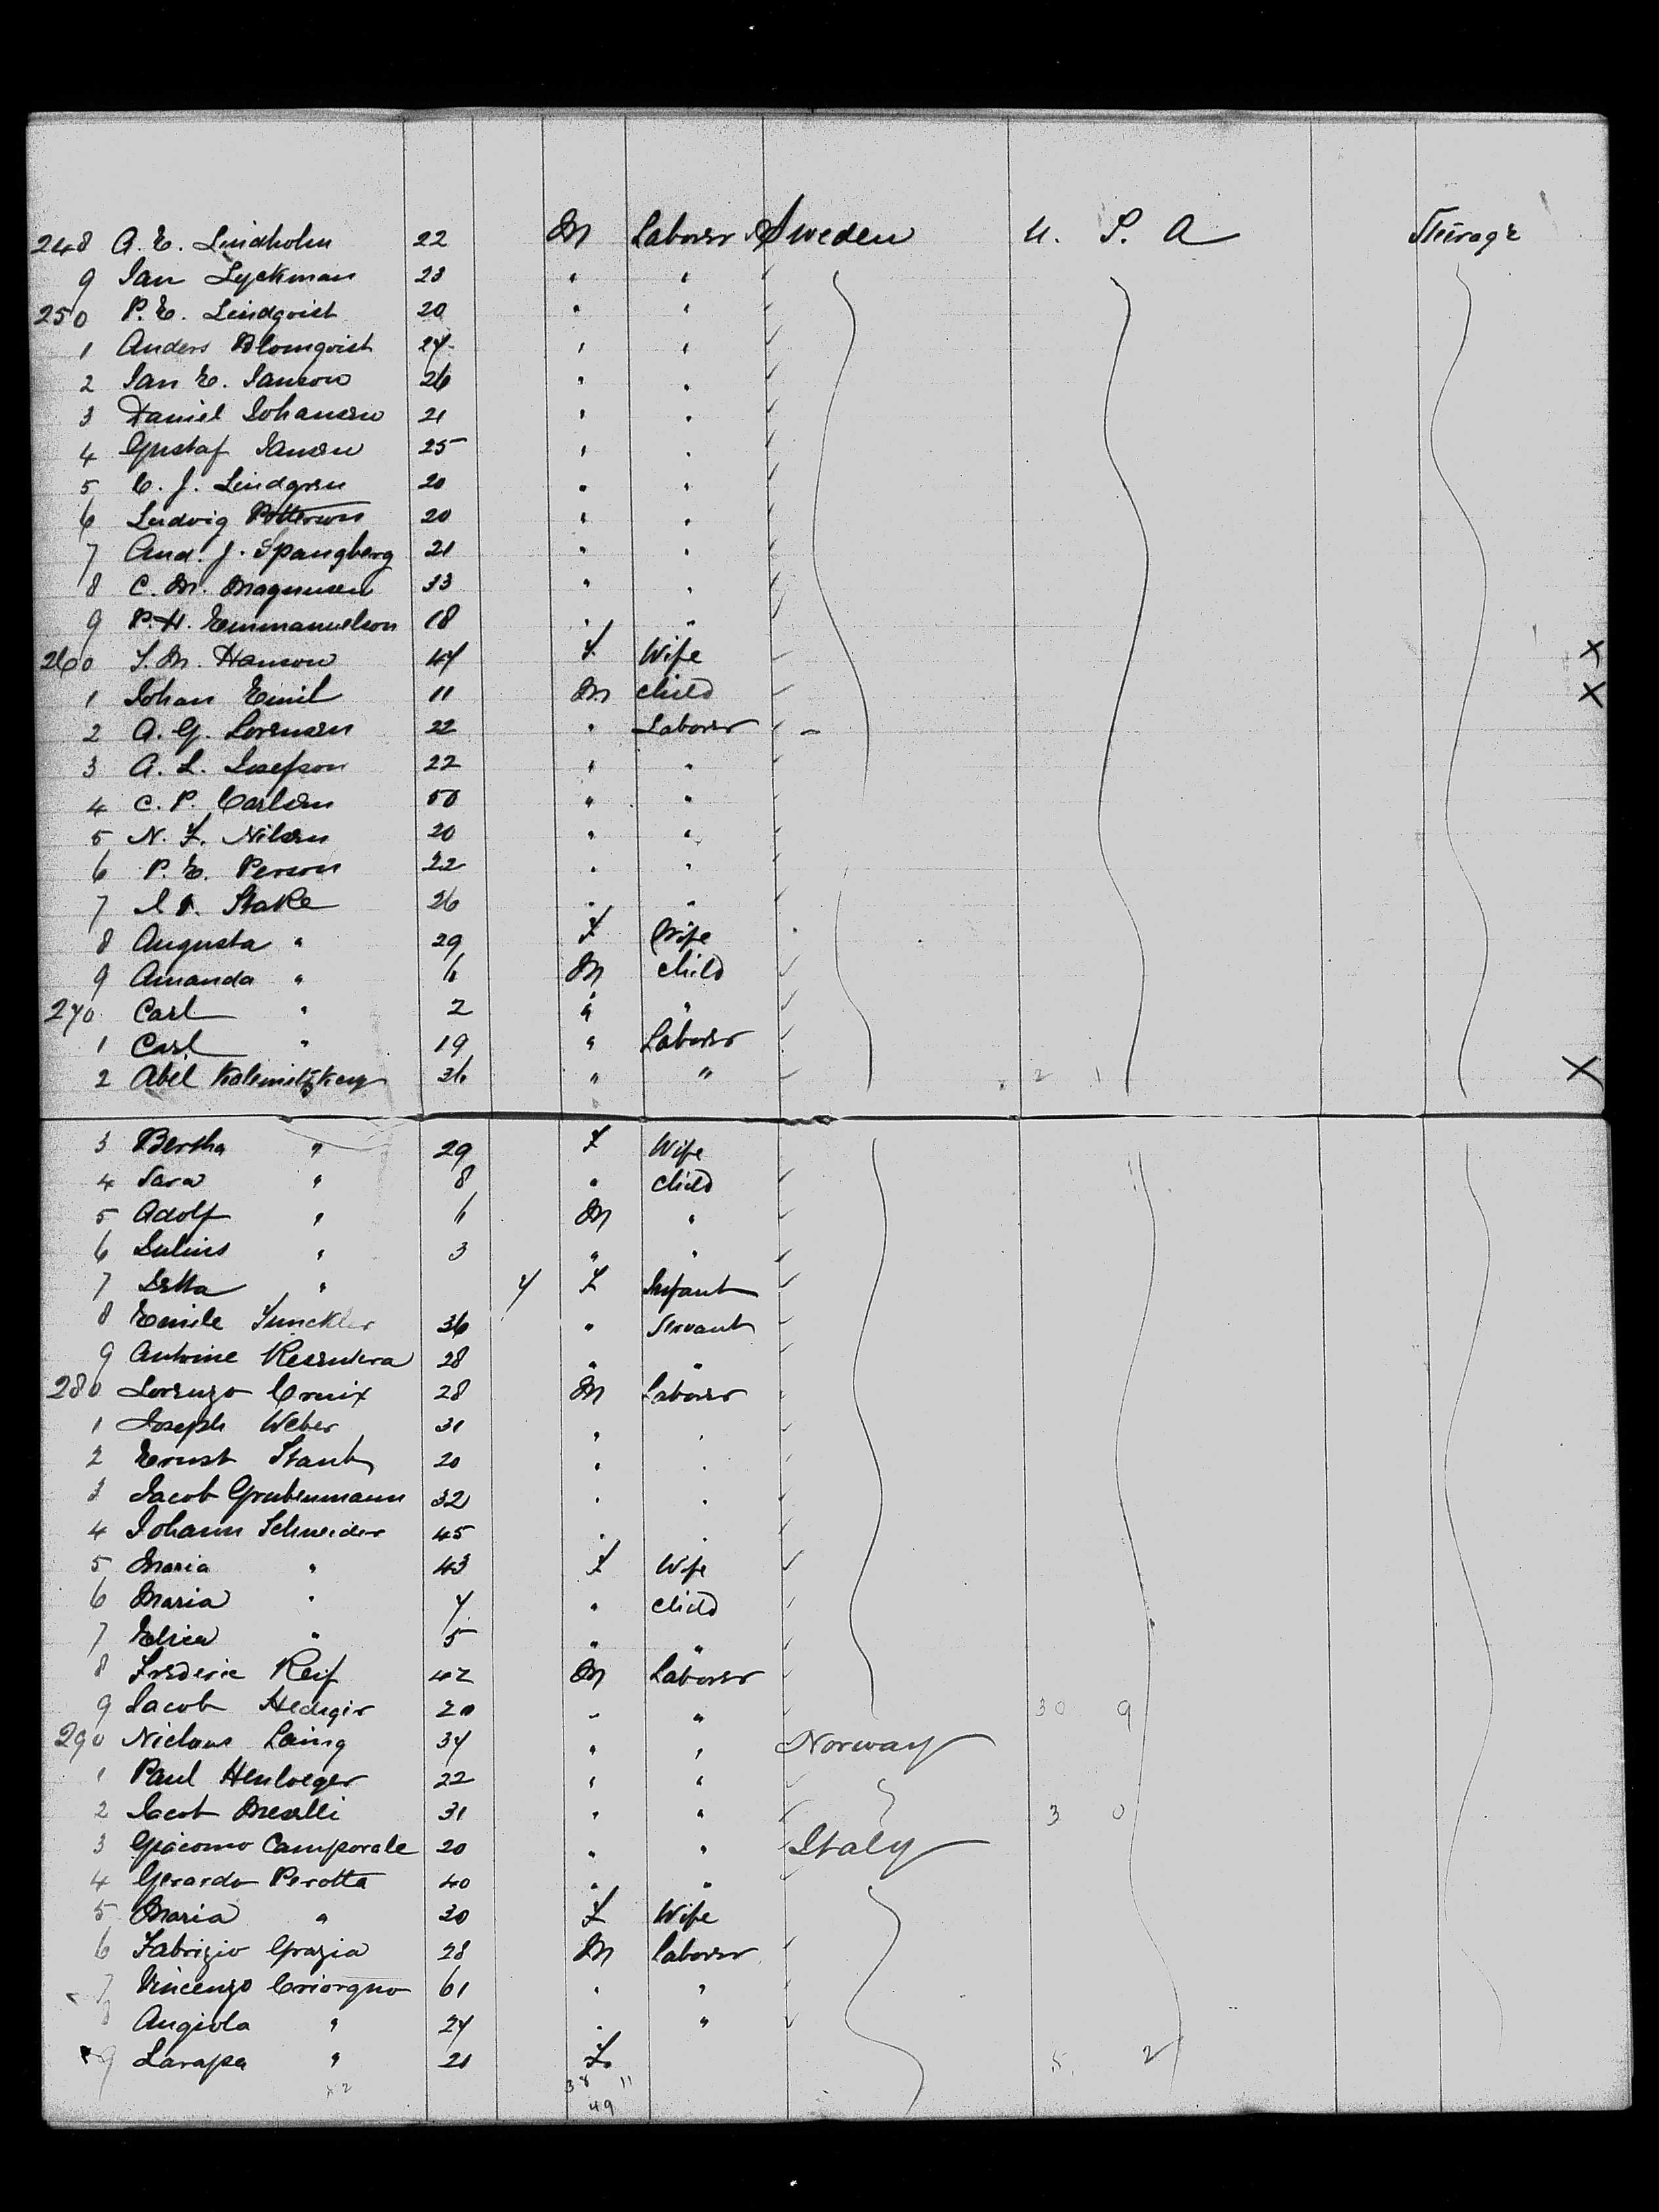 248 A. E. Lindholm 22 M Laborer Sweden U. S. A Steerage
9 Jan Lyckman 23 " "
250 P. E. Lindqvist 20 " "
1 Anders Blomqvist 24 " "
2 Jan E. Janson 26 " "
3 Daniel Johansen 21 " "
4 Gustaf Jansen 25 " "
5 C. J. Lindgren 20 " "
6 Ludvig Petterson 20 " "
7 And. J. Spangberg 21 " "
8 C. M. Magnusen 33 " "
9 P. H. Emmanuelson 18 " "
260 S. M. Hanson 47 F Wife X
1 Johan Emil 11 M child X
2 A. G. Lorensen 22 " Laborer
3 A. L. Josefson 22 " "
4 C. P. Carlsen 50 " "
5 N. F. Nilsen 20 " "
6 P. E. Person 22 " "
7 Stake 26 " "
8 Augusta " 29 F Wife
9 Amanda " 6 M child
270 Carl " 2 " "
1 Carl " 19 " Laborer
2 Abel 36 " " 2 1 X
3 Bertha " 29 F Wife
4 Sara " 8 " child
5 Adolf " 6 M "
6 Julius " 3 " "
7 Jetta " 7 F Infant
8 Emile Sunckler 36 " Servant
9 Antoine 28 " "
280 Lorenzo Cruix 28 M Laborer
1 Joseph Weber 31 " "
2 Ernst Staub 20 " "
3 Jacob Grubenmann 32 " "
4 Johann Schneider 45 " "
5 Maria " 43 F Wife
6 Maria " 7 " child
7 Elisa " 5 " "
8 Frederic Reif 42 M Laborer
9 Jacob Hediger 20 " " 30 9
290 Niclaus Laing 34 " " Norway
1 Paul 22 " "
2 Jacob 31 " " 3 0
3 Giacomo Camporale 20 " " Italy
4 Gerardo Perotta 40 " "
5 Maria " 30 F Wife
6 Fabrizio Grazia 28 M Laborer
7 Vincenzo Criorgno 61 " "
8 Angiola " 24 " "
9 Larapa " 21 F. 5 2
x2 38 11
49